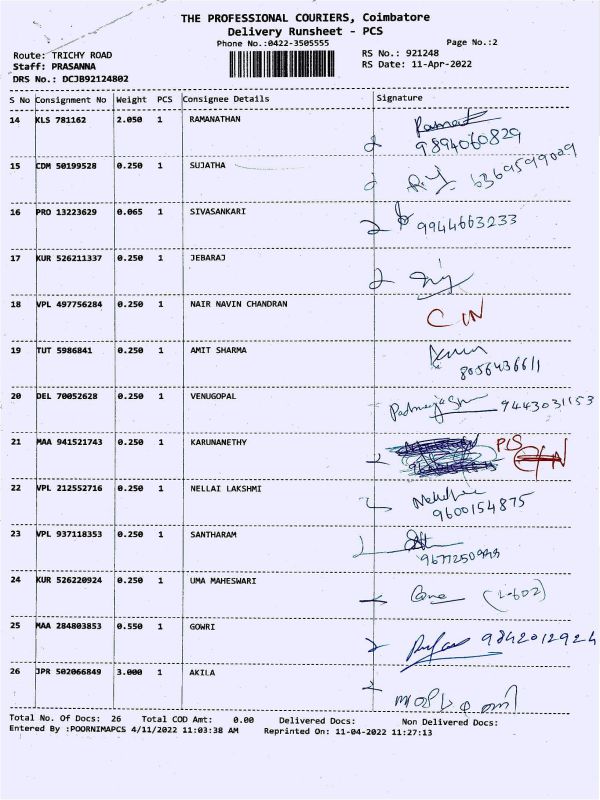 THE PROFESSIONAL COURIERS, Coimbatore
Delivery Runsheet - PCS
Phone No.:0422-3505555
Page No.:2
Route: TRICHY ROAD
RS No.: 921248
Staff: PRASANNA
RS Date: 11-Apr-2022
DRS No.: DCJB92124802
S No Consignment No Weight PCS Consignee Details Signature
14 KLS 781162 2.050 1 RAMANATHAN
9894060829
15 CDM 50199528 0.250 1 SUJATHA
6369599029
16 PRO 13223629 0.065 1 SIVASANKARI
9944663233
17 KUR 526211337 0.250 1 JEBARAJ
18 VPL 497756284 0.250 1 NAIR NAVIN CHANDRAN
C IN
19 TUT 5986841 0.250 1 AMIT SHARMA
8056436611
20 DEL 70052628 0.250 1 VENUGOPAL
9443031153
21 MAA 941521743 0.250 1 KARUNANETHY
22 VPL 212552716 0.250 1 NELLAI LAKSHMI
9600154875
23 VPL 937118353 0.250 1 SANTHARAM
24 KUR 526220924 0.250 1 UMA MAHESWARI
25 MAA 284803853 0.550 1 GOWRI
9842012924
26 JPR 502066849 3.000 1 AKILA
Total No. Of Docs: 26 Total COD Amt: 0.00 Delivered Docs: Non Delivered Docs:
Entered By :POORNIMAPCS 4/11/2022 11:03:38 AM Reprinted On: 11-04-2022 11:27:13